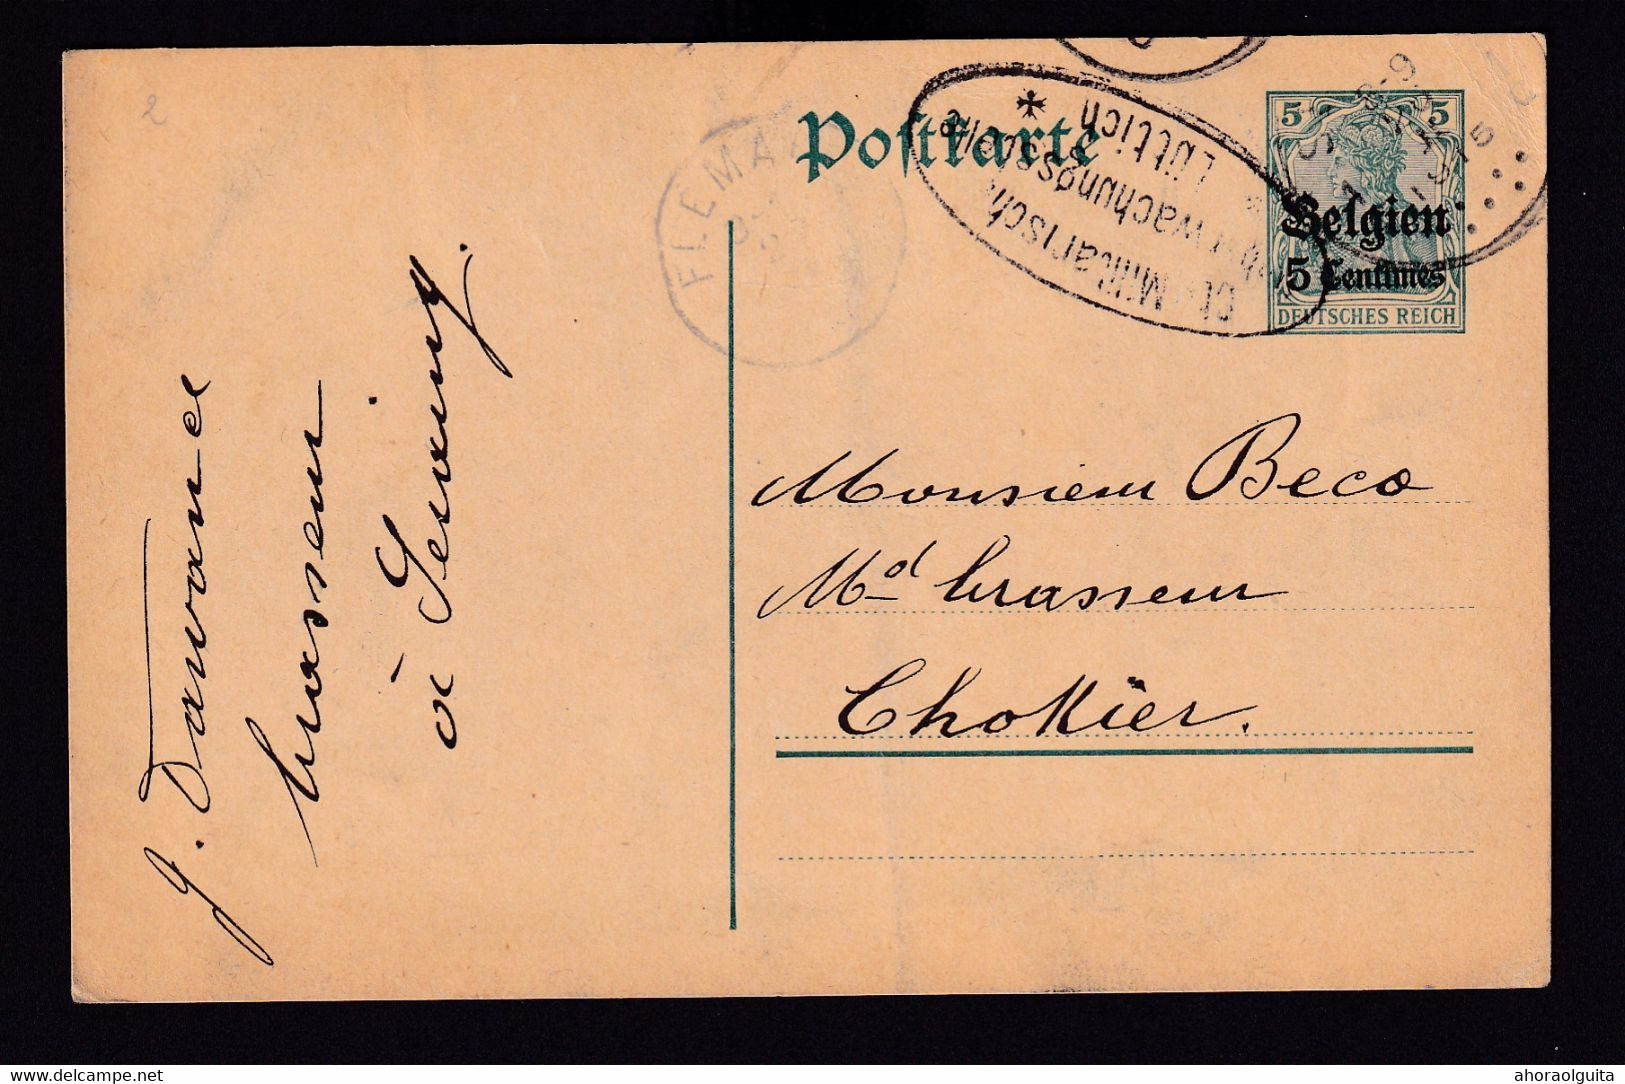 Postkarte
Ct. Militärische
Überwachungsstelle
Lüttich
5 5
Belgien
5 Centimes
DEUTSCHES REICH
FLEMA
2
J. Dawance
brasseur
à Seraing.
Monsieur Beco
Md brasseur
Chokier.
delcampe.net
ahoraolguita